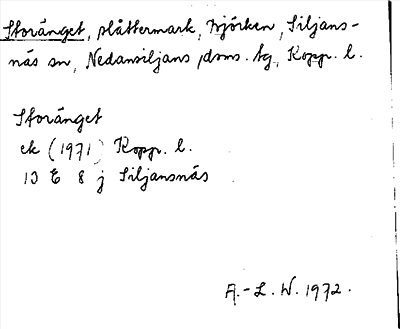 Storänget, slåttermark, Björken, Siljans-
näs sn, Nedansiljans doms. tg, Kopp. l.
Storänget
ek (1971) Kopp. l.
13 E 8 j Siljansnäs
A.-L. W. 1972.